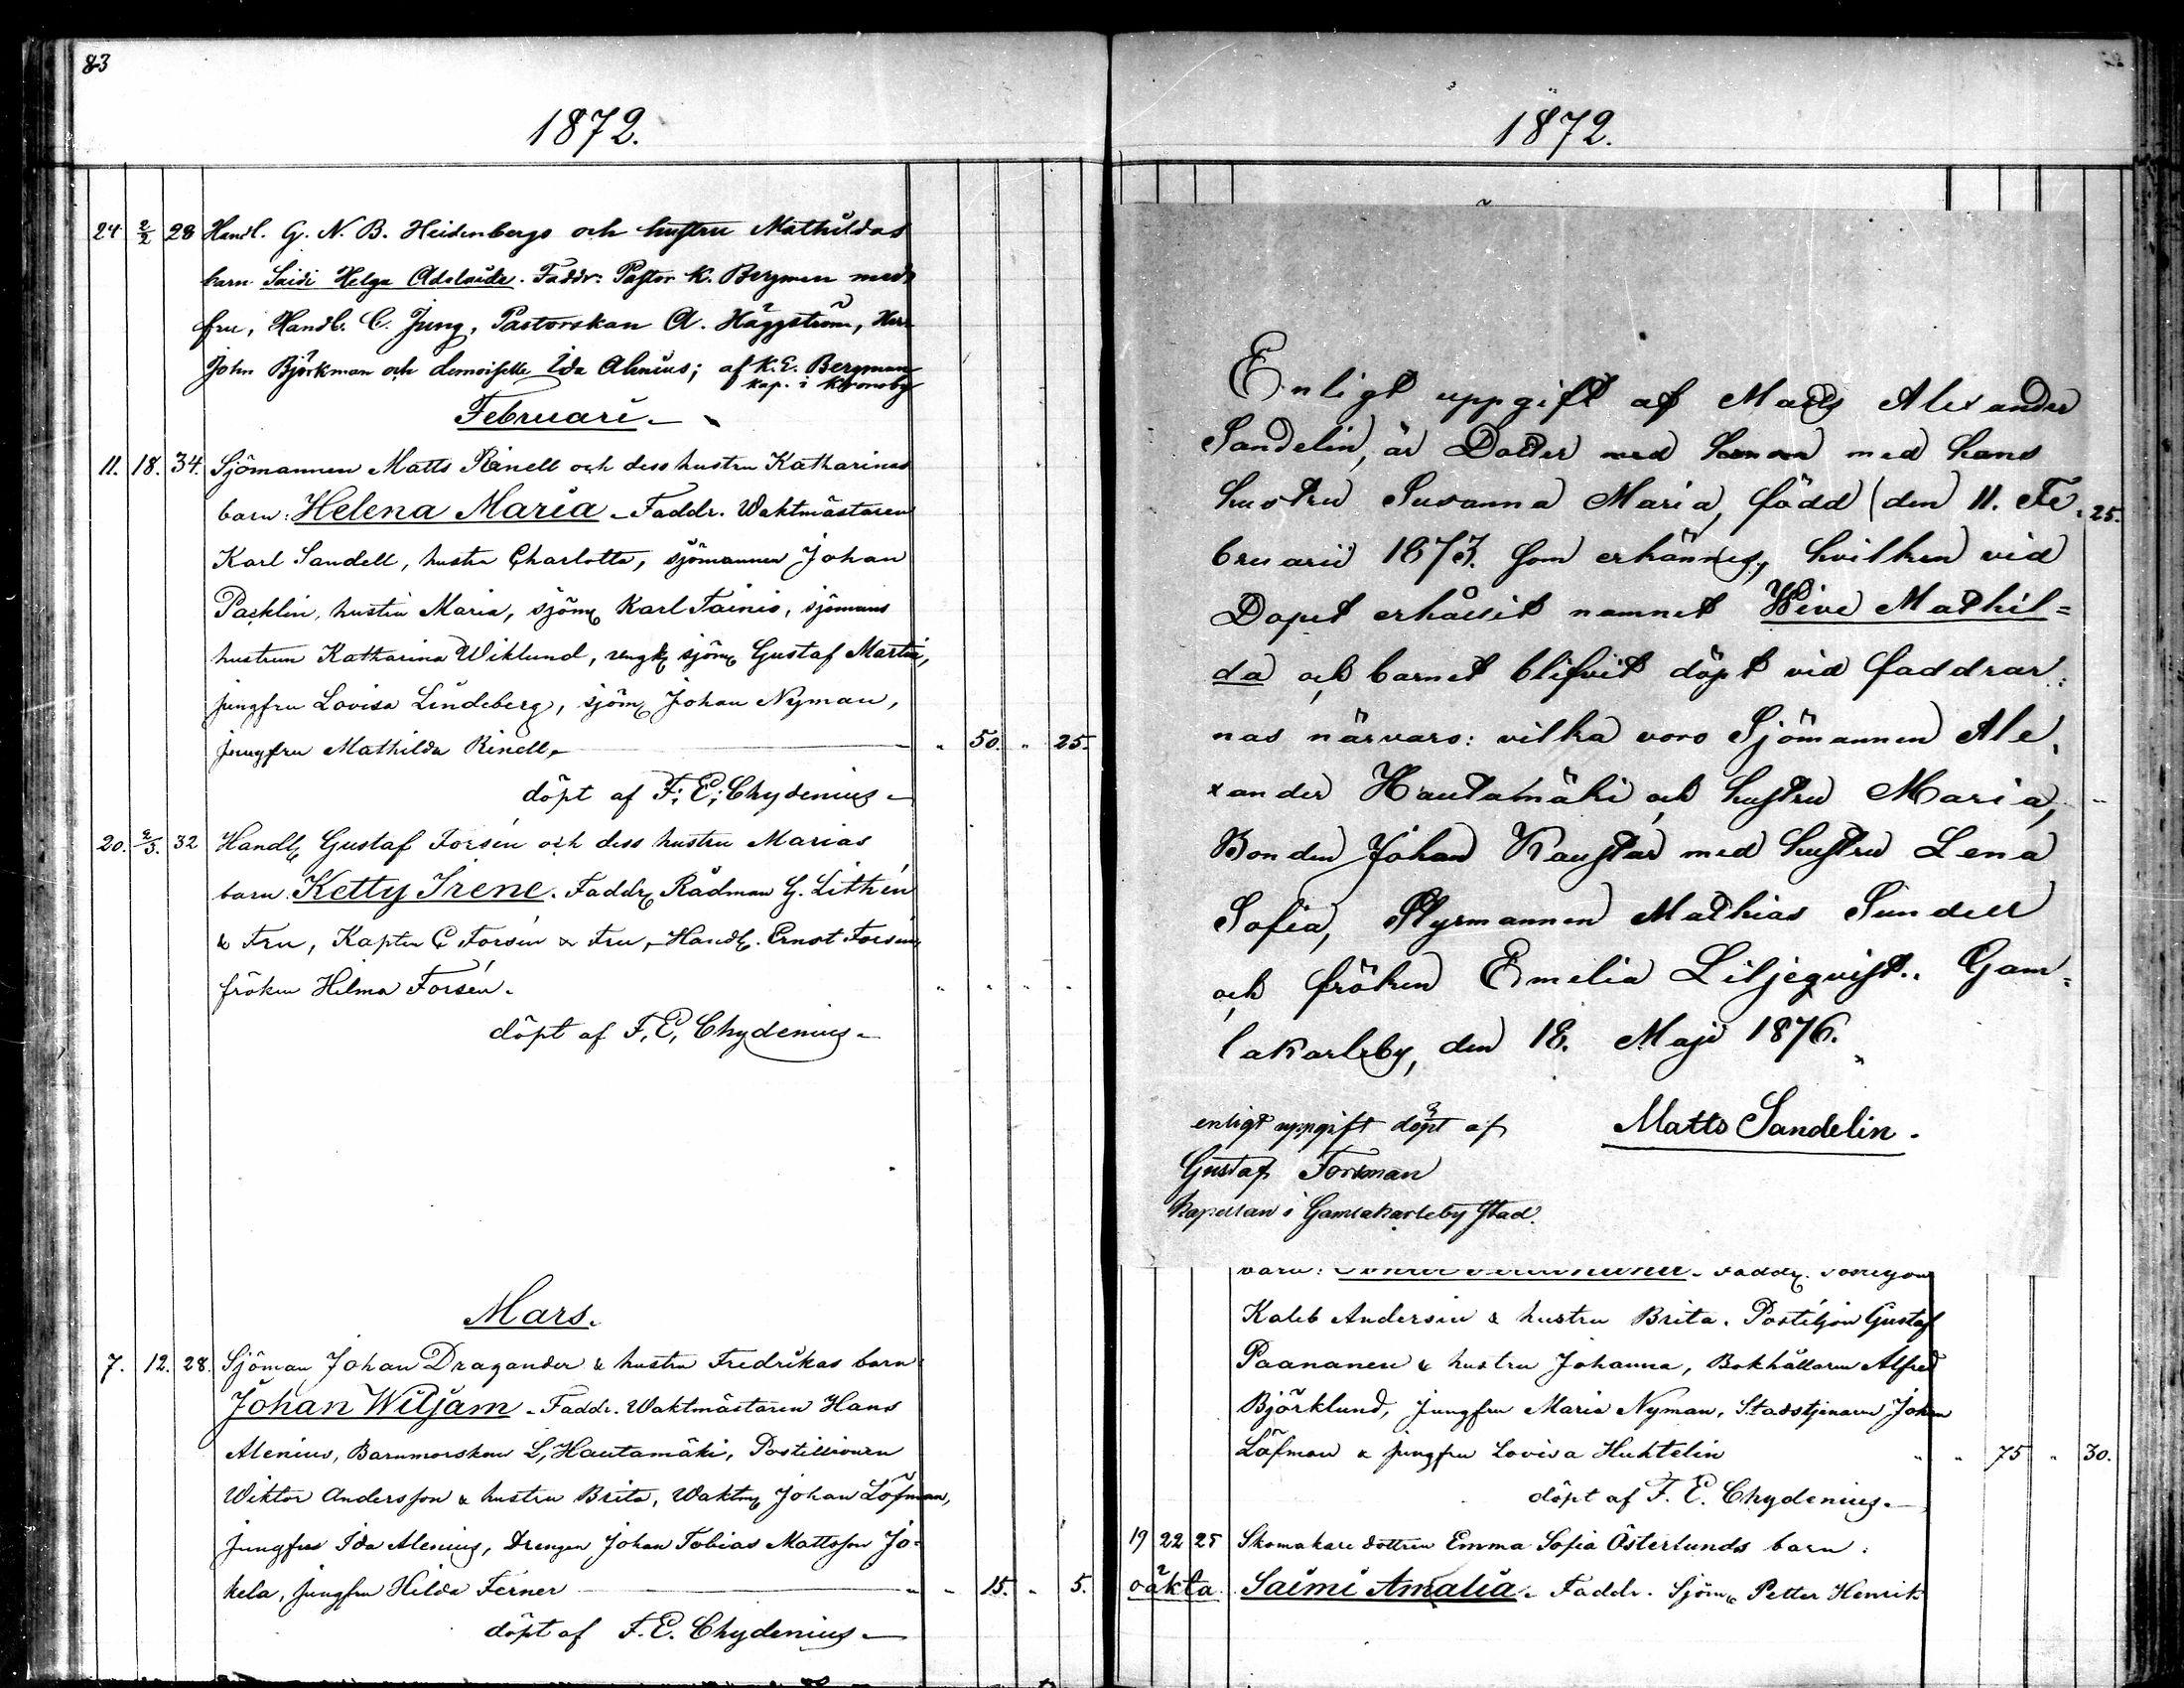 83
1872.
24 2/2 28 Handl. G. N. B. Heidenbergs och hustru Mathildas
barn Saidi Helga Adelaide. Faddr: Pastor K. Bergman med
fru, Handl. C. Jung, Pastorskan A. Häggström, Herr
John Björkman och demoiselle Ida Alenius; af K. E. Bergman
kap. i Kronoby
Februari
11. 18. 34. Sjömannen Matts Rinell och dess hustru Katharinas
barn: Helena Maria. Faddr. Waktmästaren
Karl Sandell, hustru Charlotta, sjömannen Johan
Packlin, hustru Maria, sjöm Karl Tainio, sjömans
hustrun Katharina Wiklund, sjöm Gustaf Martin,
jungfru Lovisa Lindeberg, sjöm Johan Nyman,
jungfru Mathilda Rinell. " 50. " 25.
döpt af F. E. Chydenius
20. 2/3. 32 Handl Gustaf Forsén och dess hustru Marias
barn Ketty Irene. Faddr Rådman G. Lithén
& Fru, Kapten C Forsén & Fru, Handl. Ernst Forsén,
fröken Hilma Forsén. " " " "
döpt af F. E. Chydenius
Mars.
7. 12. 28. Sjöman Johan Dragander & hustru Fredrikas barn
Johan Wiljam. Faddr. Waktmästaren Hans
Alenius, Barnmorskan L, Hautamäki, Postillionen
Wiktor Andersson & hustru Brita, Waktm Johan Löfman,
jungfru Ida Alenius, Drengen Johan Tobias Mattsson Jo-
kela, jungfru Hilda Ferner " 15. " 5.
döpt af F. E. Chydenius
1872.
Enligt uppgift af Matts Alexander
Sandelin, är Dotter med med hans
hustru Susanna Maria, född (den 11. Fe
25.
bruarii 1873. som erkännes, hvilken vid
Dopet erhållit namnet Wive Mathil=
da och barnet blifvit döpt vid faddrar:
nas närvaro: vilka voro Sjömannen Ale,
xander Hautamäki och hustru Maria,
Bonden Johan Kaustar med hustru Lena
Sofia, Styrmannen Mathias Sundell
och fröken Emelia Liljeqvist. Gam=
lakarleby, den 18. Maji 1876.
enligt uppgift döpt af Matts Sandelin.
Gustaf Forsman
Kapellan i Gamlakarleby stad.
Kaleb Andersin & hustru Brita. Postiljon Gustaf
Paananen & hustru Johanna, Bokhållaren Alfred
Björklund, jungfru Maria Nyman, Stadstjenaren Johan
Löfman & jungfru Lovisa Huhtelin " " 75 " 30.
döpt af F. E. Chydenius
19 22 25 Skomakare dottren Emma Sofia Österlunds barn:
oäkta Saimi Amalia. Faddr. Sjöm Petter Henrik